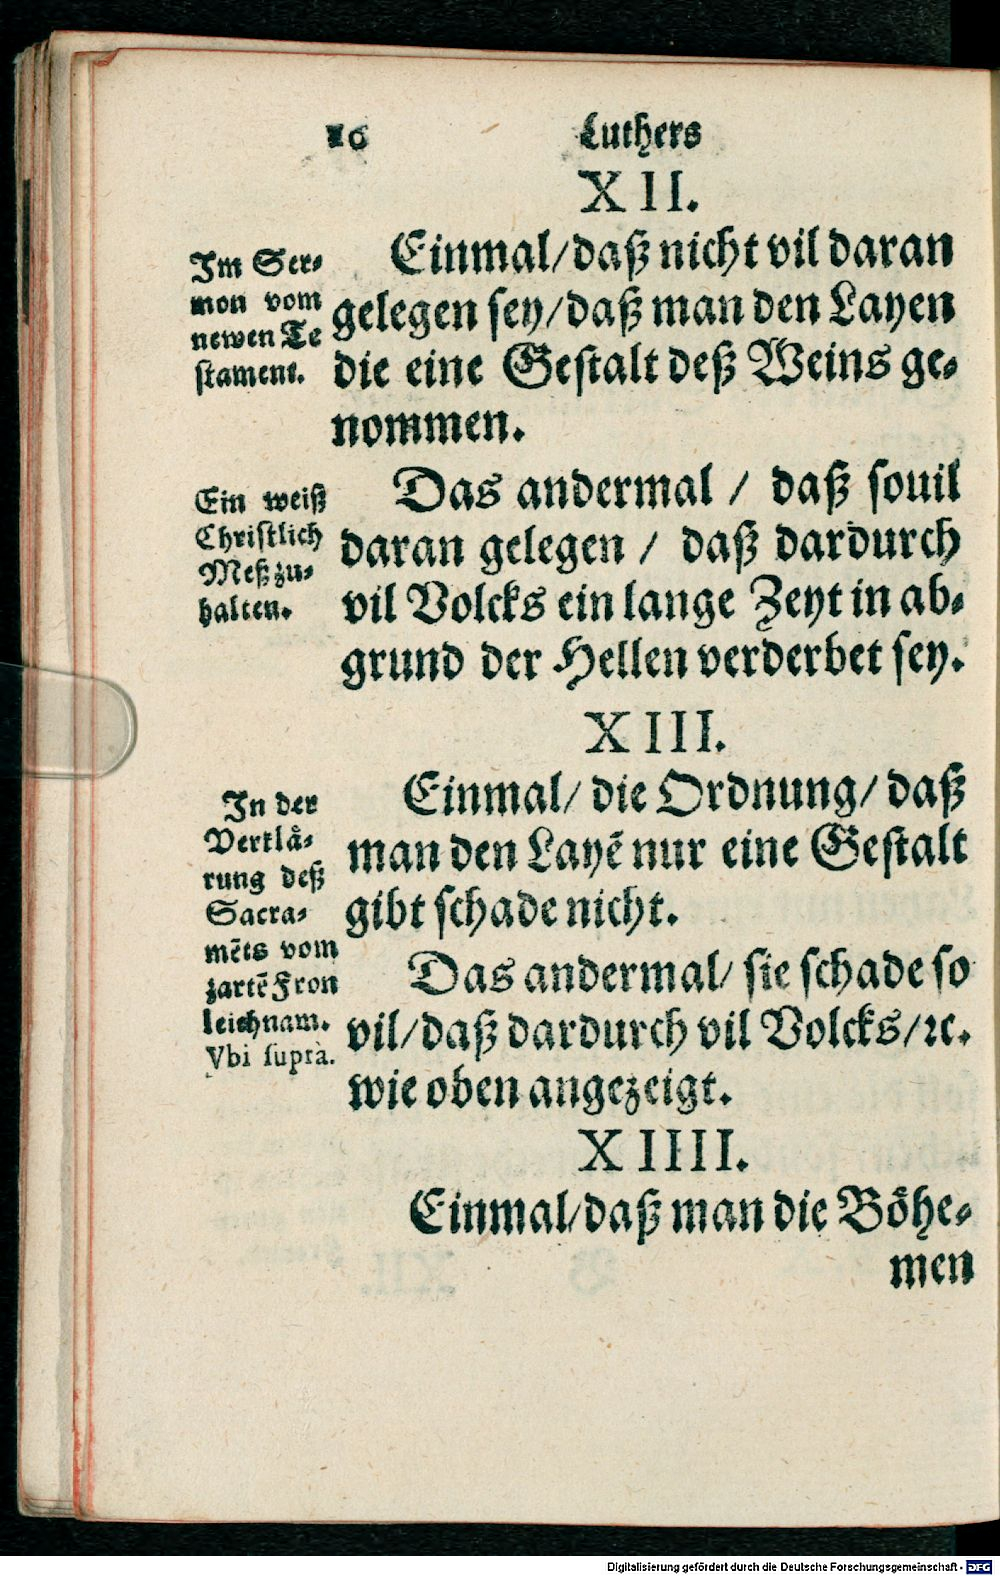 16 Luthers
XII.
Im Ser⸗
mon vom
newen Te
stament.
Einmal/daß nicht vil daran
gelegen sey/daß man den Layen
die eine Gestalt deß Weins ge⸗
nommen.
Ein weiß
Christlich
Meß zu⸗
halten.
Das andermal / daß souil
daran gelegen / daß dardurch
vil Volcks ein lange Zeyt in ab⸗
grund der Hellen verderbet sey.
XIII.
In der
Verklå⸗
rung deß
Sacra⸗
mẽts vom
zartẽ Fron
leichnam.
Vbi suprà.
Einmal/ die Ordnung/ daß
man den Layẽ nur eine Gestalt
gibt schade nicht.
Das andermal/ sie schade so
vil/daß dardurch vil Volcks/ꝛc.
wie oben angezeigt.
XIIII.
Einmal/daß man die Bôhe⸗
men
Digitalisierung gefördert durch die Deutsche Forschungsgemeinschaft - DFG